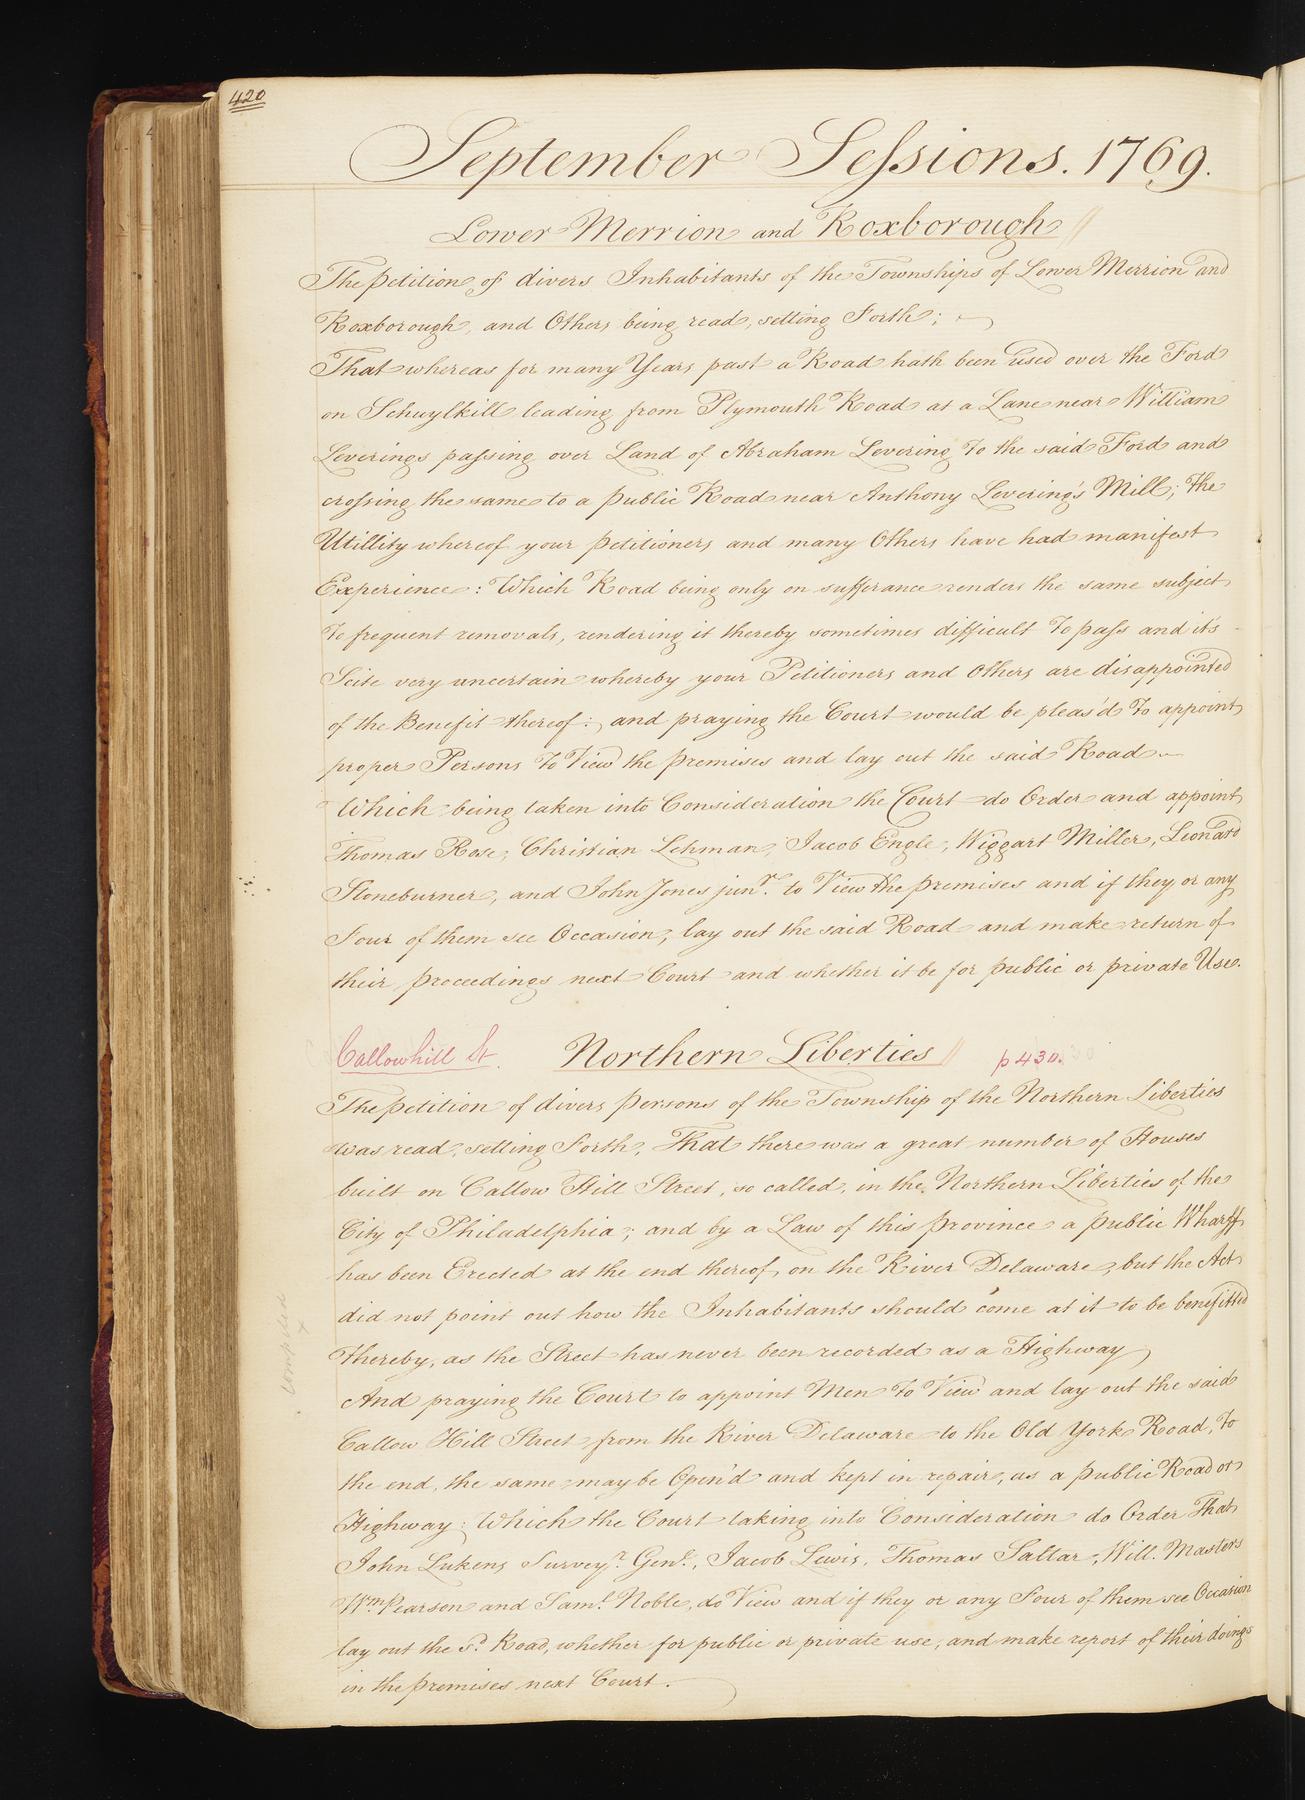 420
September Sessions. 1769.
Lower Merrion and Roxborough
The petition of divers Inhabitants of the Townships of Lower Merrion and
Roxborough, and Others being read, setting Forth;
That whereas for many Years past a Road hath been used over the Ford
on Schuylkill leading from Plymouth Road at a Lane near William
Leverings passing over Land of Abraham Levering to the said Ford and
crossing the same to a public Road near Anthony Levering's Mill; the
Utillity whereof your petitioners and many Others have had manifest
Experience: Which Road being only on sufferance renders the same subject
to frequent removals, rendering it thereby sometimes difficult to pass and it's
Scite very uncertain whereby your Petitioners and Others are disappointed
of the Benefit thereof: and praying the Court would be pleas'd to appoint
proper Persons to View the premises and lay out the said Road
Which being taken into Consideration the Court do Order and appoint
Thomas Rose, Christian Lehman, Jacob Engle, Wiggart Miller, Leonard
Stoneburner, and John Jones junr. to View the premises and if they or any
Four of them see Occasion, lay out the said Road and make return of
their proceedings next Court and whether it be for public or private Use.
Callowhill St. Northern Liberties p430.
The petition of divers persons of the Township of the Northern Liberties
was read, setting Forth, That there was a great number of Houses
built on Callow Hill Street, so called, in the Northern Liberties of the
City of Philadelphia; and by a Law of this province a public Wharff
has been Erected at the end thereof, on the River Delaware, but the Act
did not point out how the Inhabitants should come at it to be benefitted
thereby, as the Street has never been recorded as a Highway
And praying the Court to appoint Men to View and lay out the said
Callow Hill Street from the River Delaware to the Old York Road, to
the end, the same may be Open'd and kept in repair, as a public Road or
Highway: Which the Court taking into Consideration do Order That
John Lukens Surveyr. Genl., Jacob Lewis, Thomas Saltar, Will. Masters
Wm. Pearson and Saml. Noble, do View and if they or any Four of them see Occasion
lay out the sd. Road, whether for public or private use, and make report of their doings
in the premises next Court.